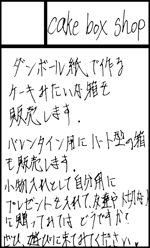 cake box shop
ダンボール紙で作る
ケーキみたいな箱を
販売します。
バレンタイン用にハート型の箱
も販売します。
小物入れとして自分用に
プレゼントを入れて、友達や大切な人
に贈ってみてはどうですか？
ぜひ、遊びに来てみてください。